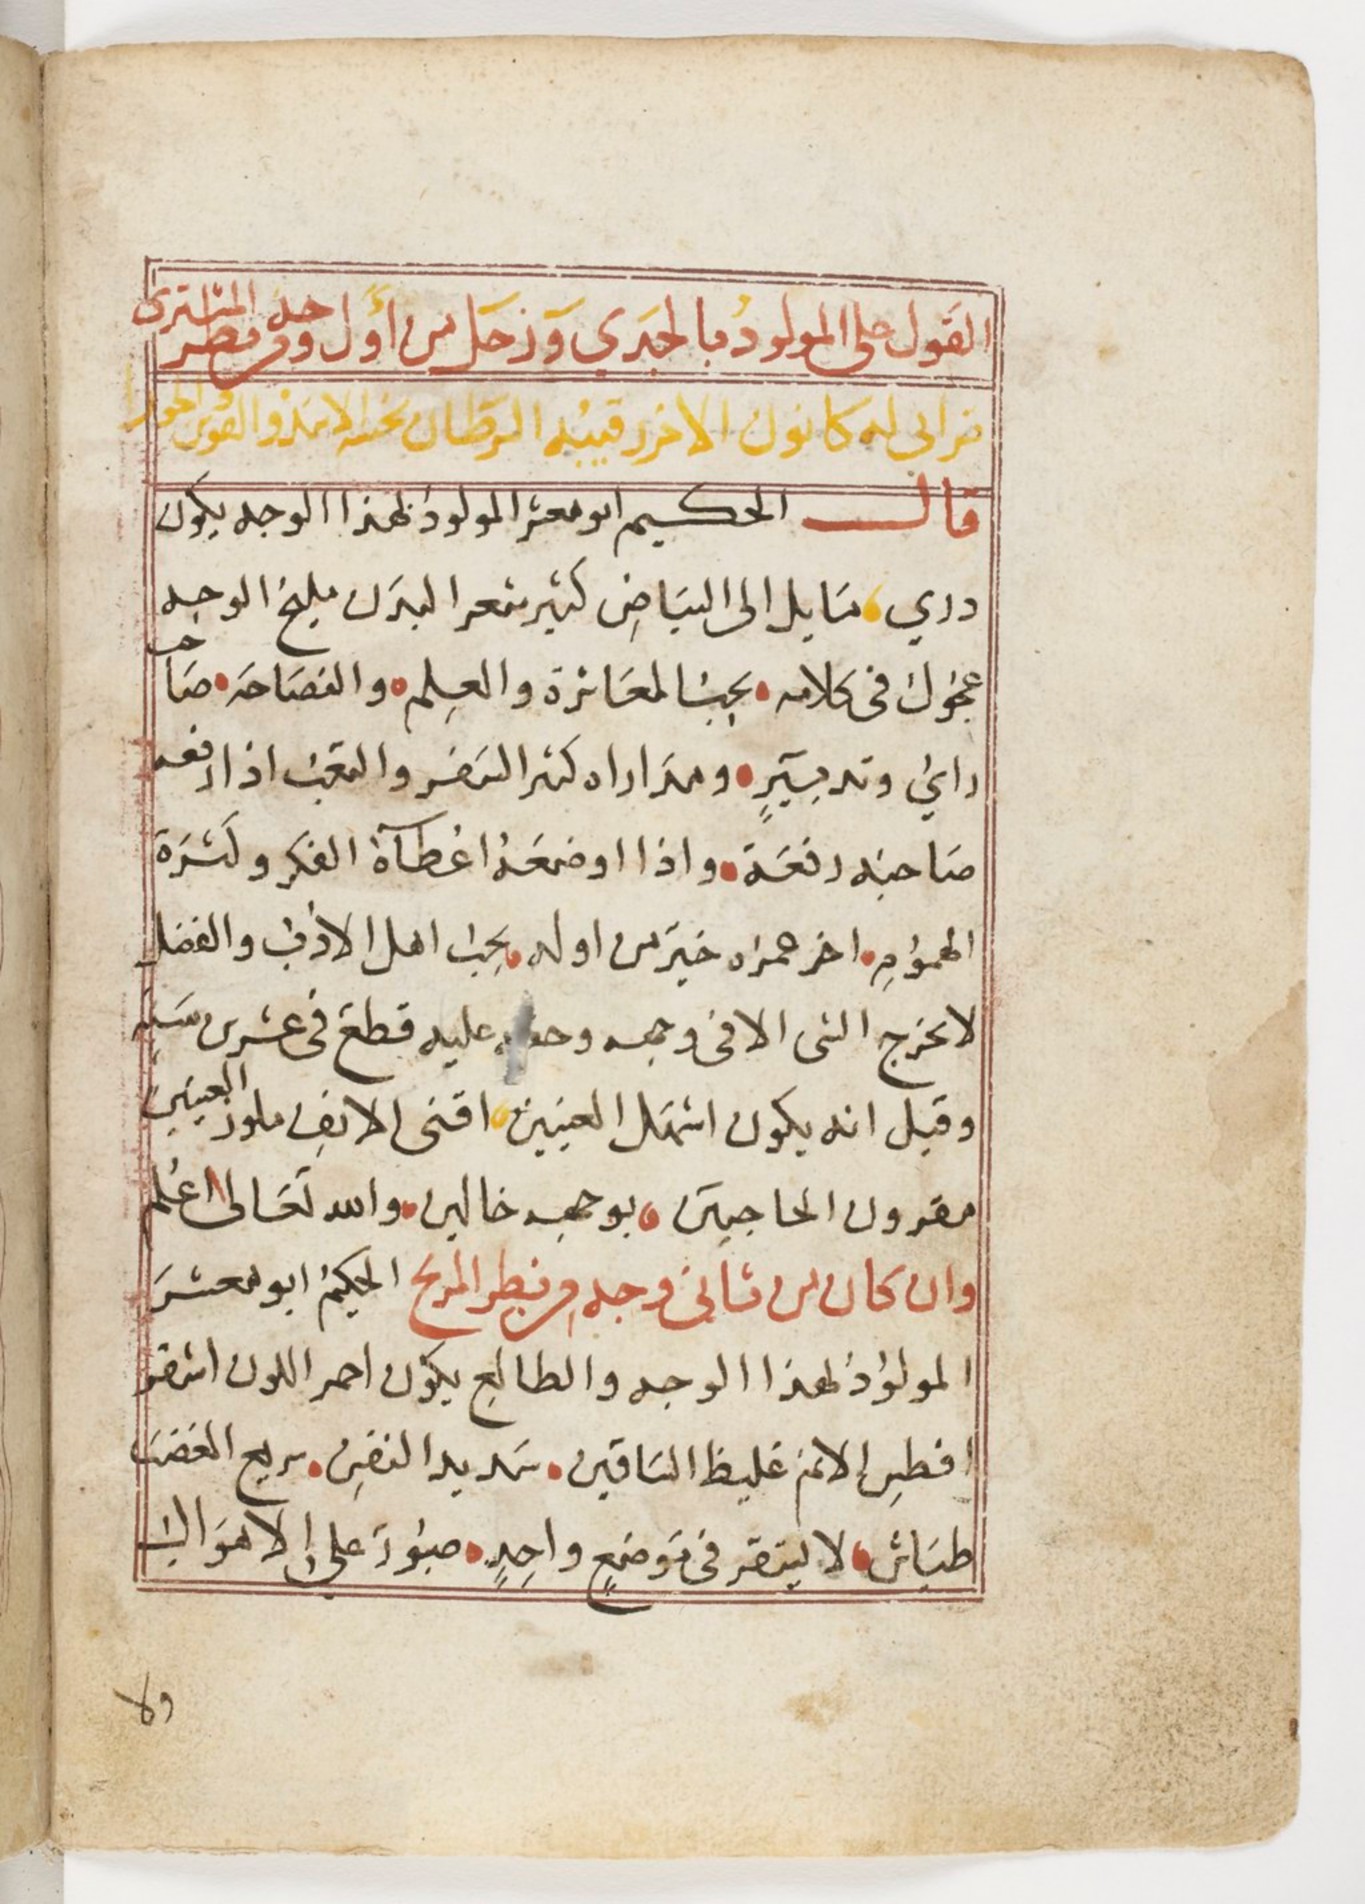 القول على المولود بالجدي وزحل من أول وجه ونظر المشترى
ترابى له كانون الاخر رقيبه السرطان نحسه الاسد والقوس الجوزا
قال الحكيم ابو معشر المولود لهذا الوجه يكون
دري مايل الى البياض كثير شعر البدن مليح الوجه
عجول فى كلامه يحب المعاشرة والعلم والفصاحه صاحب
راي وتدبير ومداراه كثير السفر والتعب اذا رفعه
صاحبه رفعة واذا اوضعه اعطاه الفكر وكثرة
الهموم اخر عمره خير من اوله يحب اهل الادب والفضل
لا يخرج الشى الا فى وجهه عليه قطع فى عشرين سنه
وقيل انه يكون اشهل العينين اقنى الانف ملوز العينين
مقرون الحاجبين بوجهه خالين والله تعالى اعلم
وان كان من ثانى وجه ونظر المريخ الحكيم ابو معشر
المولود لهذا الوجه والطالع يكون احمر اللون اشقر
افطس الانف غليظ الساقين شديد النفس سريع الغضب
طياش لا يستقر فى موضع واحد صبور على الاهوال
ولا